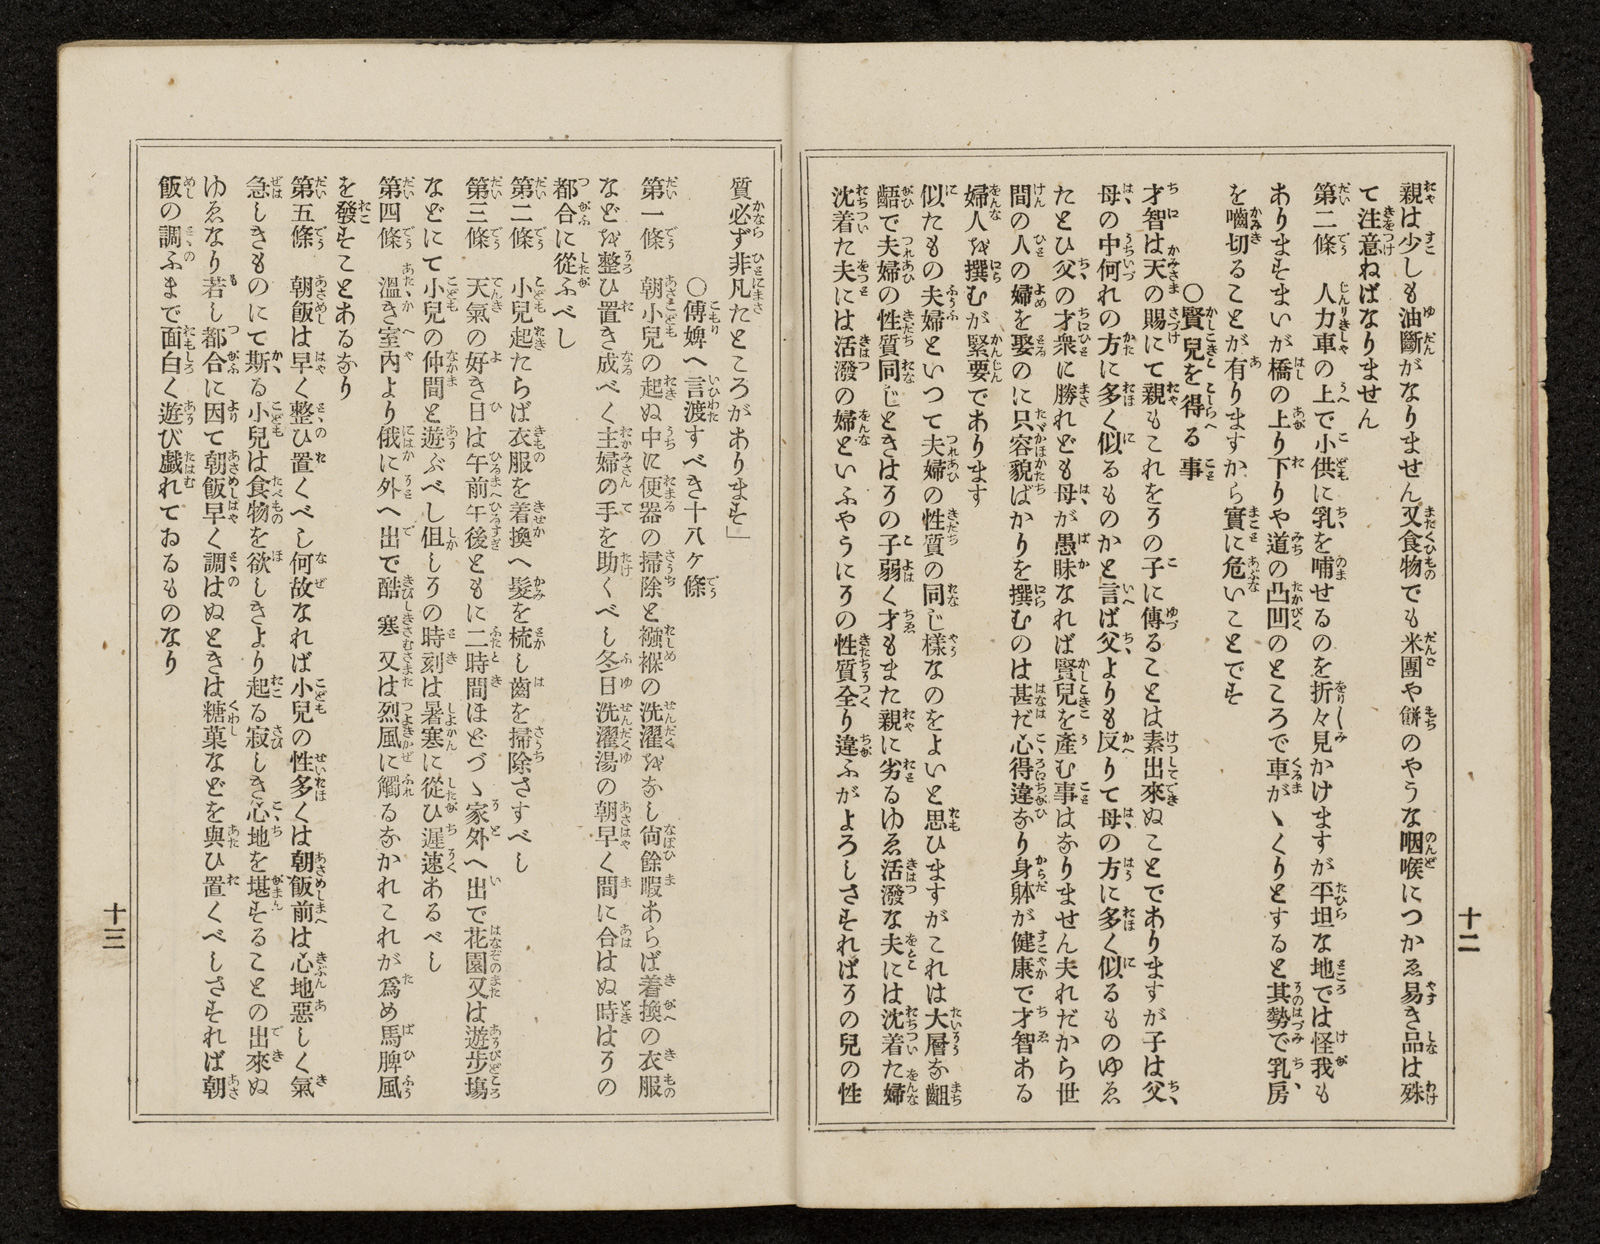 親は少しも油斷がなりません又食物でも米團や餅のやうな咽喉につかゑ易き品は殊
て注意ねばなりません
第二條　人力車の上で小供に乳を哺せるのを折々見かけますが平坦な地では怪我も
ありますまいが橋の上り下りや道の凸凹のところで車がゝくりとすると其勢で乳房
を嚙切ることが有りますから實に危いことです
〇賢兒を得る事
才智は天の賜にて親もこれをその子に傳ることは素出來ぬことでありますが子は父、
母の中何れの方に多く似るものかと言ば父よりも反りて母の方に多く似るものゆゑ
たとひ父の才衆に勝れども母が愚昧なれば賢兒を產む事はなりません夫れだから世
間の人の婦を娶のに只容貌ばかりを撰むのは甚だ心得違なり身躰が健康で才智ある
婦人を撰むが緊要であります
似たもの夫婦といつて夫婦の性質の同じ樣なのをよいと思ひますがこれは大層な齟
齬で夫婦の性質同じときはその子弱く才もまた親に劣るゆゑ活潑な夫には沈着た婦
沈着た夫には活潑の婦といふやうにその性質全り違ふがよろしさすればその兒の性
十二
質必ず非凡たところがあります」
〇傅婢へ言渡すべき十八ケ條
第一條　朝小兒の起ぬ中に便器の掃除と襁褓の洗濯をなし尙餘暇あらば着換の衣服
などを整ひ置き成べく主婦の手を助くべし冬日洗濯湯の朝早く間に合はぬ時はその
都合に從ふべし
第二條　小兒起たらば衣服を着換へ髮を梳し齒を掃除さすべし
第三條　天氣の好き日は午前午後ともに二時間ほどづゝ家外へ出で花園又は遊步塲
などにて小兒の仲間と遊ぶべし但しその時刻は暑寒に從ひ遲速あるべし
第四條　溫き室內より俄に外へ出で酷寒又は烈風に觸るなかれこれが爲め馬脾風
を發すことあるなり
第五條　朝飯は早く整ひ置くべし何故なれば小兒の性多くは朝飯前は心地惡しく氣
急しきものにて斯る小兒は食物を欲しきより起る寂しき心地を堪することの出來ぬ
ゆゑなり若し都合に因て朝飯早く調はぬときは糖菓などを與ひ置くべしさすれば朝
飯の調ふまで面白く遊び戲れておるものなり
十三